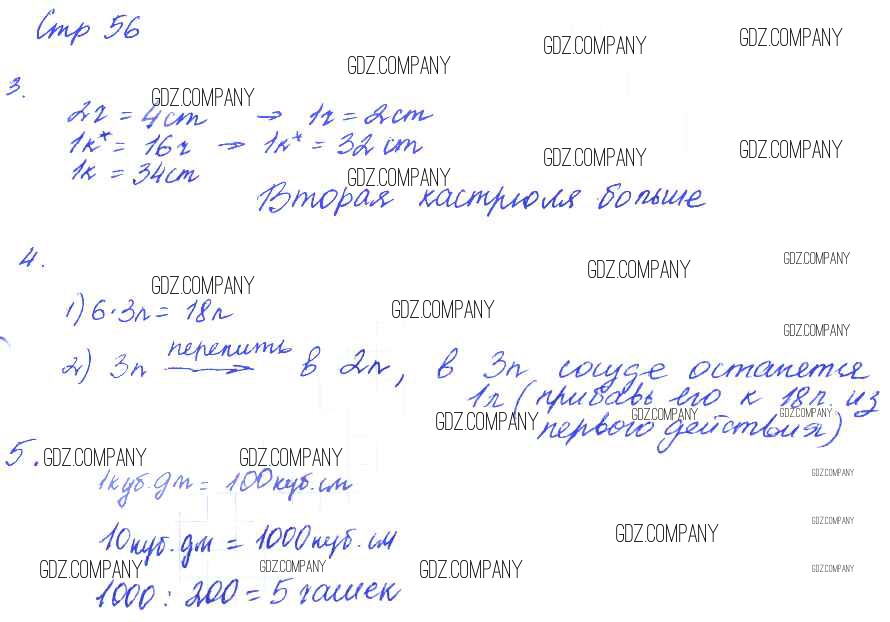 Стр 56
GDZ.COMPANY GDZ.COMPANY GDZ.COMPANY
3.
GDZ.COMPANY
2ч = 4ст → 1ч = 2ст
1к* = 16ч → 1к* = 32ст
GDZ.COMPANY GDZ.COMPANY
1к = 34ст
GDZ.COMPANY
Вторая кастрюля больше
4.
GDZ.COMPANY GDZ.COMPANY
GDZ.COMPANY
1) 6·3л = 18л
GDZ.COMPANY
GDZ.COMPANY
2) 3л перелить в 2л, в 3л сосуде останется
1л (прибавь его к 18л из
GDZ.COMPANY GDZ.COMPANY GDZ.COMPANY
первого действия)
5.
GDZ.COMPANY GDZ.COMPANY
GDZ.COMPANY
1куб.дм = 100куб.см
GDZ.COMPANY
10куб.дм = 1000куб.см
GDZ.COMPANY
GDZ.COMPANY GDZ.COMPANY GDZ.COMPANY GDZ.COMPANY
1000 : 200 = 5 чашек